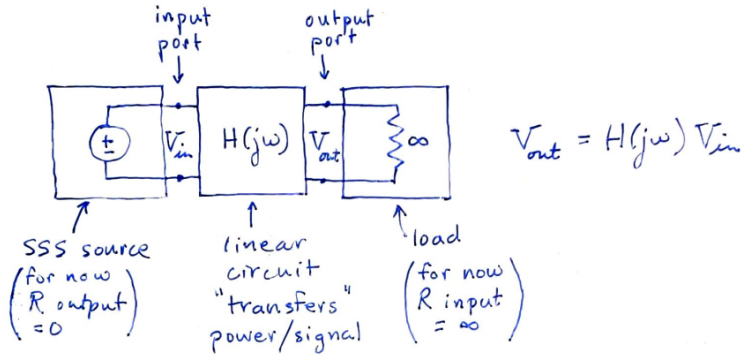 input
port
output
port
±
Vin
H(jω)
Vout
∞
Vout = H(jω) Vin
SSS source
(for now
R output
=0)
linear
circuit
"transfers"
power/signal
load
(for now
R input
= ∞)